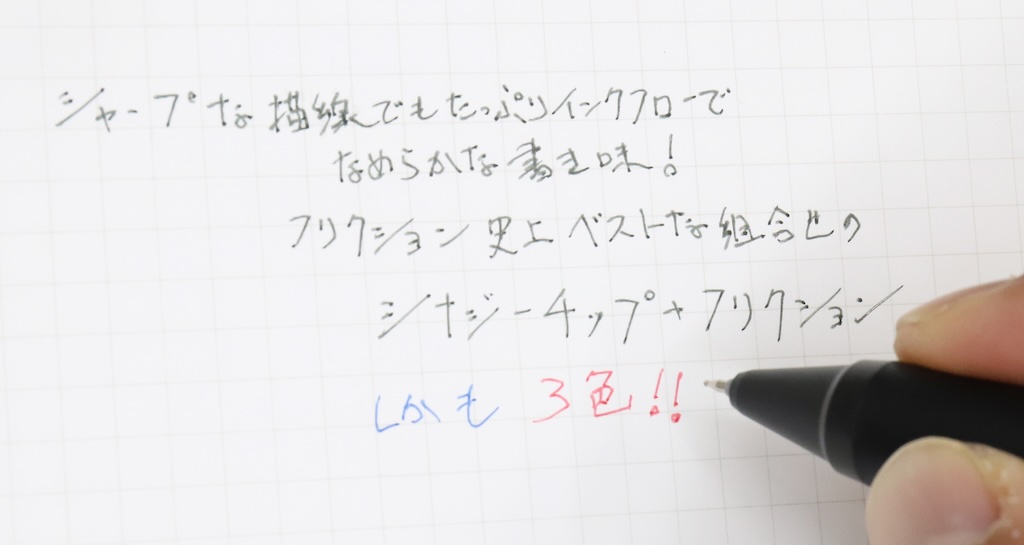 シャープな描線でもたっぷりインクフローで
なめらかな書き味!
フリクション史上ベストな組合せの
シナジーチップ+フリクション
しかも 3色!!